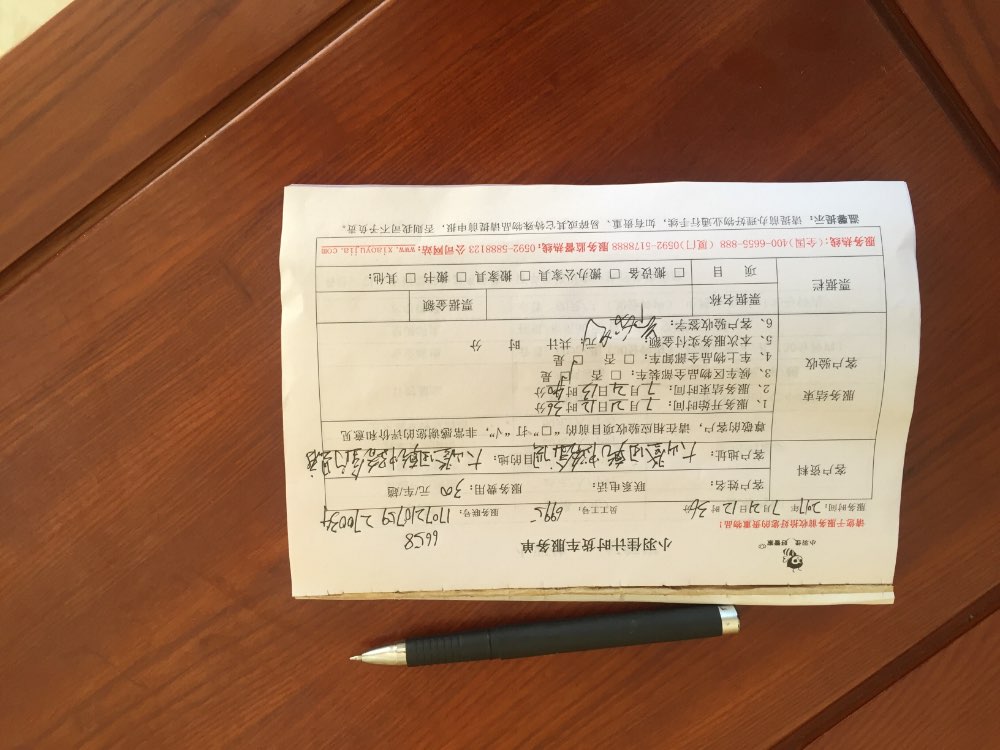 小羽佳 好管家
小羽佳计时货车服务单
6658
请您于服务前收拾好您的贵重物品！
服务时间：2017年 7月21日12时36分 员工号：6995 服务联号：
客户资料
客户姓名： 联系电话： 服务费用：300元/车/趟
客户地址： 目的地：
尊敬的客户，请在相应验收项目前的“□”打“√”，非常感谢您的评价和意见
服务结束
客户验收
1、服务开始时间：7月21日12时36分
2、服务结束时间：7月21日13时40分
3、候车区物品全部装车：□ 否 ☑ 是
4、车上物品全部卸车：□ 否 ☑ 是
5、本次服务实付金额： 元；共计 时 分
6、客户验收签字：
票据栏
票据名称 票据金额
项 目 □ 搬设备 □ 搬办公家具 □ 搬家具 □ 搬书 □ 其他：
服务热线：(全国)400-6655-888（厦门）(0592)-5178888；服务监督热线：0592-5888123 公司网站：www.xiaoyujia.com
温馨提示：请提前办理好物业通行手续，如有贵重、易碎或其它特殊物品请提前申报，否则我司不予负责。